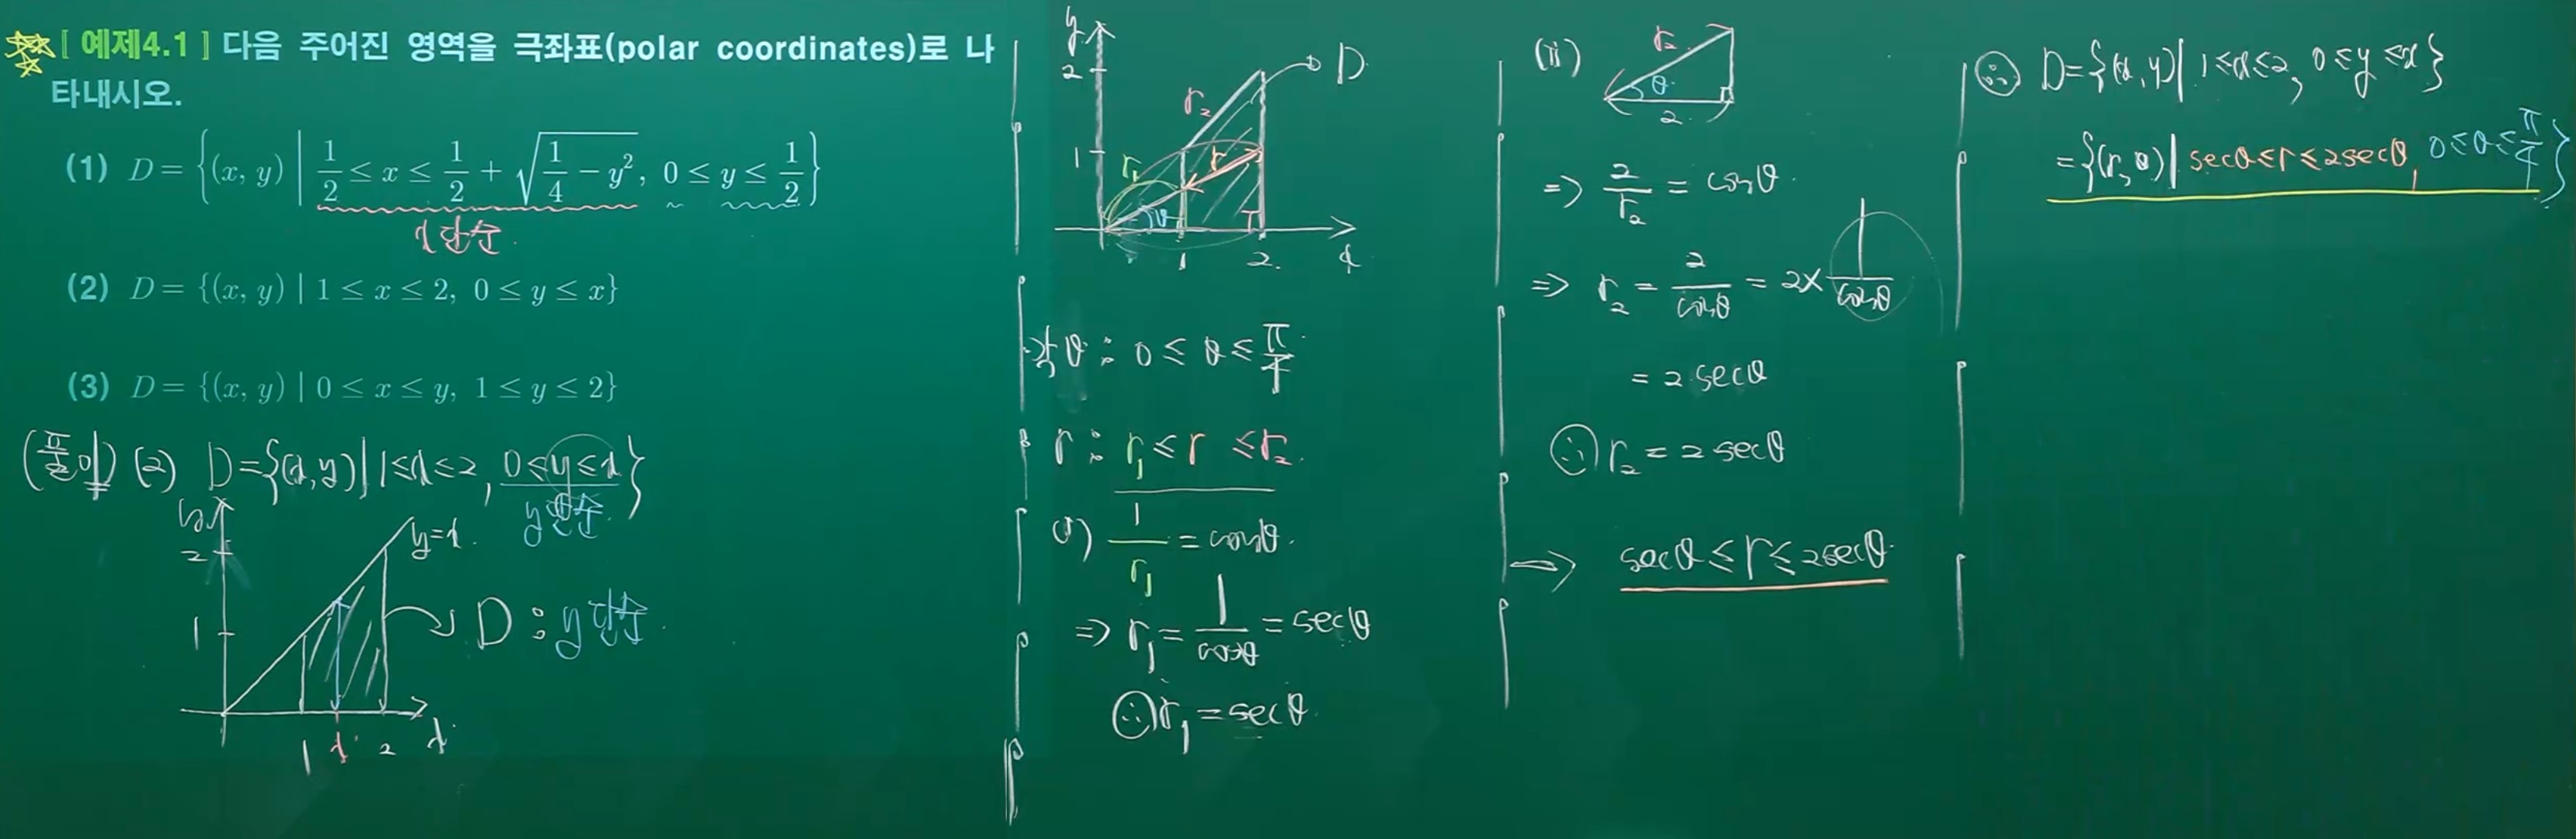 [ 예제4.1 ] 다음 주어진 영역을 극좌표(polar coordinates)로 나
타내시오.
(1) D = {(x, y) | 1/2 ≤ x ≤ 1/2 + √(1/4 − y²), 0 ≤ y ≤ 1/2}
x단순.
(2) D = {(x, y) | 1 ≤ x ≤ 2, 0 ≤ y ≤ x}
(3) D = {(x, y) | 0 ≤ x ≤ y, 1 ≤ y ≤ 2}
(풀이) (2) D={(x,y)| 1≤x≤2, 0≤y≤x}
y단순.
y
2
y=x.
1
D : y단순.
1 x 2 x
y
2
D
r₂
1
r₁ r
θ
1 2. x
각θ : 0 ≤ θ ≤ π/4
r : r₁ ≤ r ≤ r₂.
(i) 1/r₁ = cosθ.
⇒ r₁ = 1/cosθ = secθ
∴ r₁ = secθ.
(ii)
r₂
θ
2
⇒ 2/r₂ = cosθ.
⇒ r₂ = 2/cosθ = 2× 1/cosθ
= 2secθ
∴ r₂ = 2secθ
→ secθ ≤ r ≤ 2secθ.
∴ D={(x,y)| 1≤x≤2, 0≤y≤x}
={(r,θ)| secθ≤r≤2secθ, 0≤θ≤π/4}